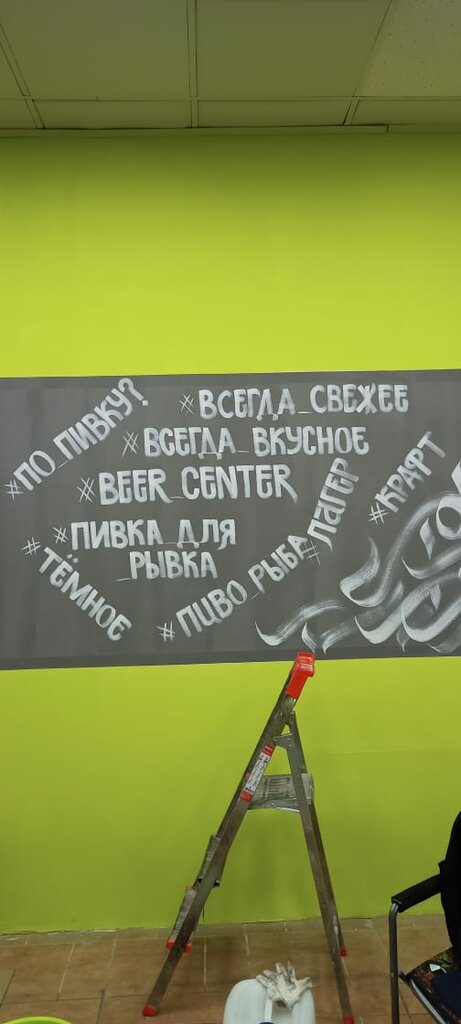 #ПО_ПИВКУ?
#ВСЕГДА_СВЕЖЕЕ
#ВСЕГДА_ВКУСНОЕ
#BEER_CENTER
#КРАФТ
#ПИВКА_ДЛЯ
_РЫВКА
#ЛАГЕР
#ТЁМНОЕ
#ПИВО_РЫБА